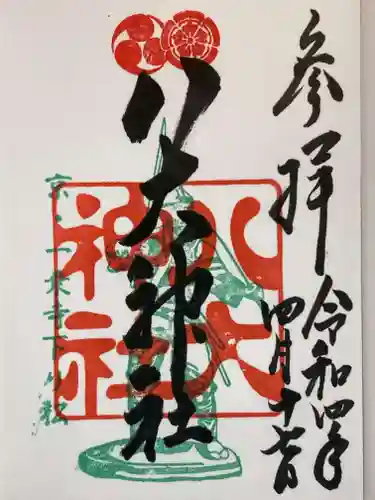 参拝
令和四年
四月十
八大神社
八大
神社
京・一乗寺下り松